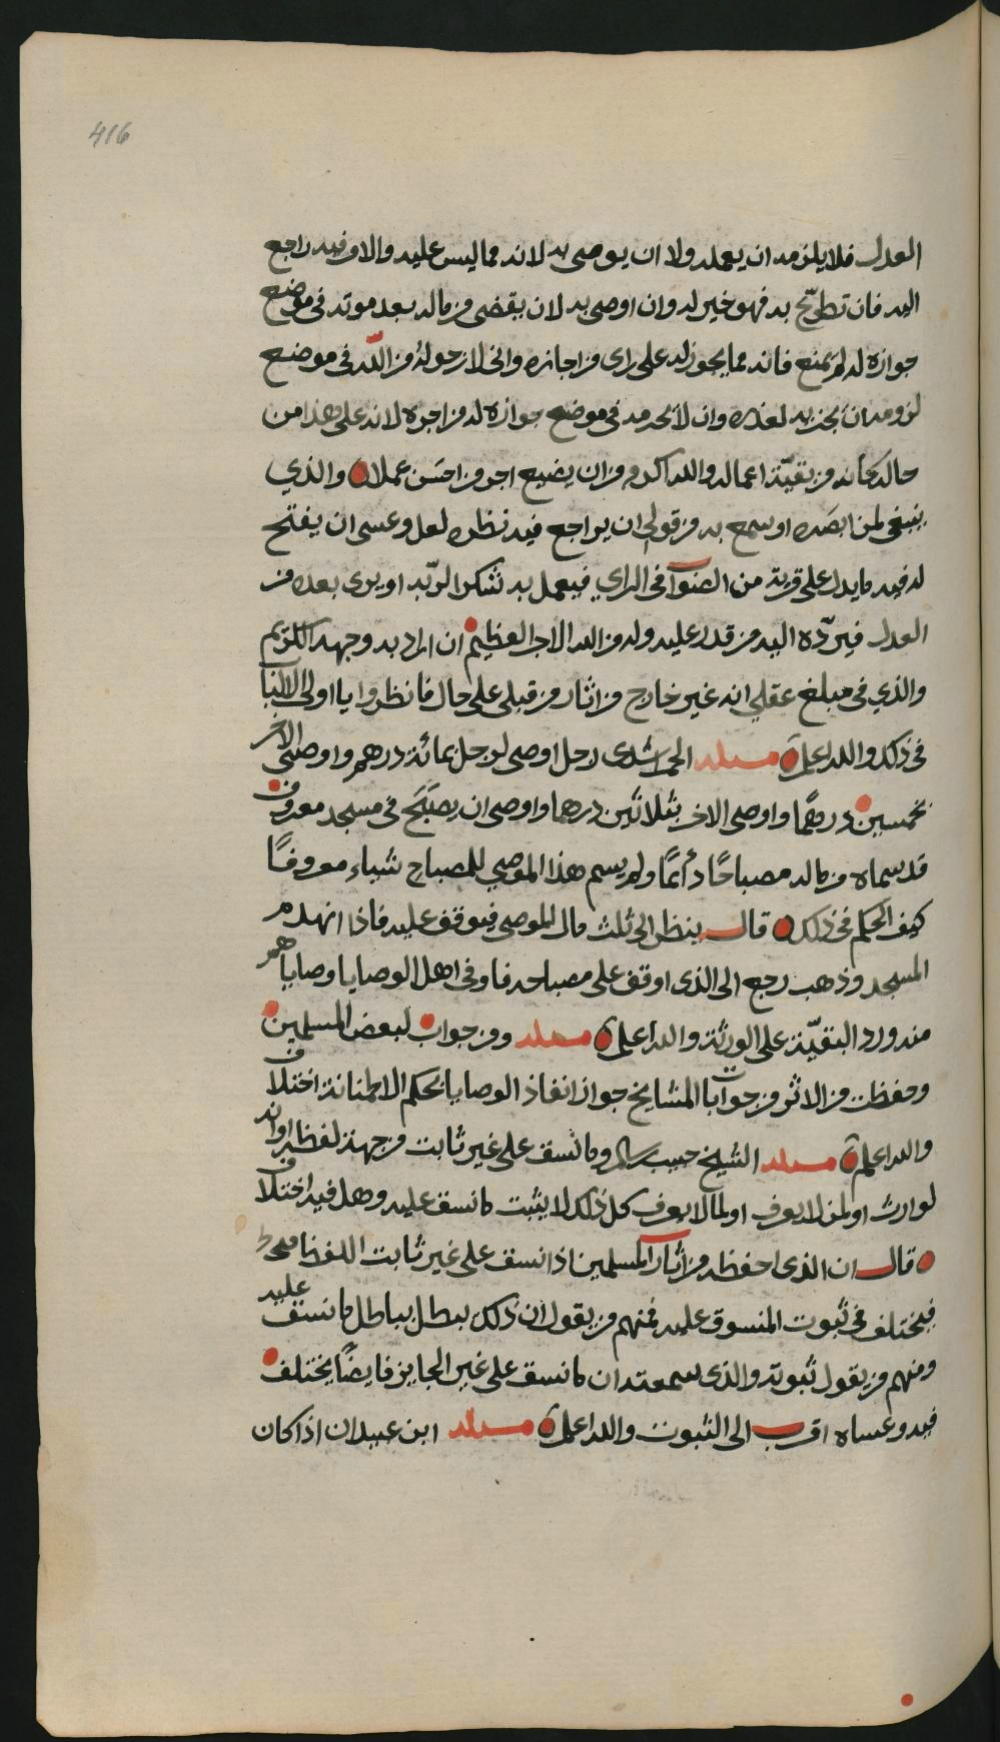 416
العدل فلا يلزمه ان يعمله ولا ان يوصى به لانه مما ليس عليه والامر فيه راجع
اليه فان تطوع به فهو خير له وان اوصى به لان يقضى من ماله بعد موته فى موضع
جوازه له لم يمنع فانه مما يجوز له على راى من اجازه وانى لارجو له من الله فى موضع
لزومه ان يجزيه لعذره وان لا يحرمه فى موضع جوازه له من اجره لانه على هذا من
حاله كانه من بقيّة اعماله والله اكرم من ان يضيع اجر من احسن عملا والذي
ينبغى لمن ابصره او سمع به من قولي ان يراجع فيه نظره لعل وعسى ان يفتح
له فيه ما يدل على قربه من الصواب فى الراي فيعمل به شكرا لربّه او يرى بعده من
العدل فيردّه اليه من قدر عليه وله من الله الاجر العظيم ان اراد به وجهه الكريم
والذي فى مبلغ عقلي انه غير خارج من اثار من قبلى على حال فانظروا يا اولى الالباب
فى ذلك والله اعلم مسئله الحمراشدى رجل اوصى لرجل بمائة درهم واوصى لاخر
بخمسين درهمًا واوصى لاخر بثلاثين درهما واوصى ان يصبّح فى مسجد معروف
قد سماه من ماله مصباحًا دائمًا ولم يسم هذا الموصي للمصباح شياء معروفًا
كيف الحكم فى ذلك قال ينظر الى ثلث مال الموصى فيوقف عليه فاذا انهدم
المسجد وذهب رجع الى الذى اوقف على مصباحه فاوفى اهل الوصايا وصاياهم
منه ورد البقيّة على الورثة والله اعلم مسئله ومن جواب لبعض المسلمين
وحفظت من الاثر من جوابات المشايخ جواز انفاذ الوصايا بحكم الاطمنانة اختلاف
والله اعلم مسئله الشيخ حبيب بن سالم وما نسق على غير ثابت من جهة لفظه او انه
لوارث او لمن لا يعرف او لما لا يعرف كل ذلك لا يثبت ما نسق عليه وهل فيه اختلاف
قال ان الذى احفظه من اثار المسلمين اذا نسق على غير ثابت اللفظ
فيختلف فى ثبوت المنسوق عليه فمنهم من يقول ان ذلك يبطل بباطل ما نسق عليه
ومنهم من يقول ثبوته والذى سمعته ان ما نسق على غير الجايز فايضًا يختلف
فيه وعساه اقرب الى الثبوت والله اعلم مسئلة ابن عبيدان اذا كان